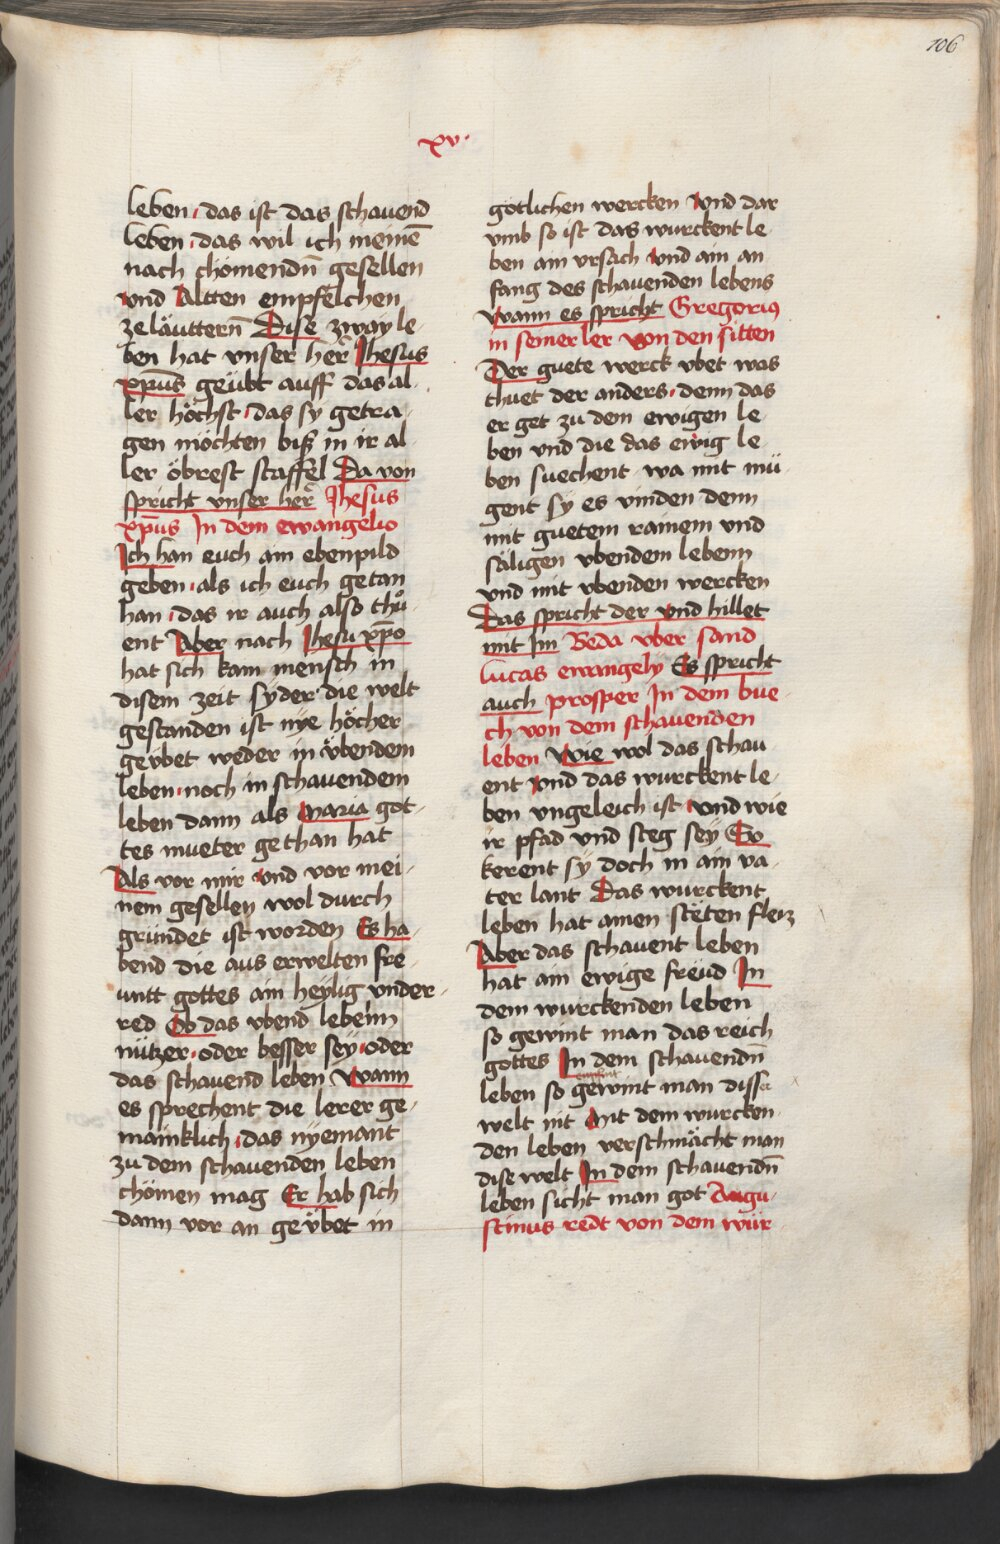 106
xv·
leben · das ist das schauend
leben · das wil ich meinē
nach chömendn̄ gesellen
vnd Altten empfelchen
ze läutternˉ Dise zway le-
ben hat vnser her̄ Jhesus
xp̄us geübt auff das al-
ler höchst · das sy getra-
gen möchten biß in ir al-
ler öbrest staffel Da von
spricht vnser her̄ Jhesus
xp̄us In dem ewangelio
Ich han euch ain ebenpild
geben · als ich euch getan
han · das ir auch also thů-
ent Aber nach Jhesu xp̄o
hat sich kain mensch in
disem zeit syder die welt
gestanden ist nye höcher
geybet weder in ÿbendem
leben · noch in schauendem
leben dann als Maria got-
tes mueter gethan hat
Als vor mir vnd vor mei-
nem gesellen wol durch
gründet ist worden Es ha-
bend die aus erwelten fre-
untt gottes ain heÿlig vnder-
red Ob das vbend lebenn
nützer · oder besser seÿ · oder
das schauend leben Wann
es sprechent die lerer ge-
mainklich · das nÿemant
zu dem schauenden leben
chömen mag Er hab sich
dann vor an geÿbet in
götlichen wercken Vnd dar
vmb so ist das wurckent le-
ben ain vrsach vnd ain an-
fang des schauenden lebens
Wann es spricht Gregorius
in seiner ler von den sitten
Der guete werck vbet was
thuet der anders · denn das
er get zu dem ewigen le-
ben vnd die das ewig le-
ben suechent wa mit mü-
gent sy es vinden denn
mit guetem rainem vnd
säligen vbendem lebenn
vnd mit vbenden wercken
Das spricht der vnd hillet
mit Im Beda vber sand
lucas ewangelÿ Es spricht
auch prosper In dem bue-
ch von dem schauenden
leben Wie wol das schau-
ent vnd das wurckent le-
ben vngeleich ist · vnd wie
ir pfad vnd steg sey So
kerent sÿ doch in ain va-
ter lant Das wurckent
leben hat ainen stëten fleiz
Aber das schauent leben
hat ain ewige freüd In
dem wurckenden leben
so gewint man das reich
gottes In dem schauendn̄
leben so gewint man disse
welt nit Mit dem wurcken-
den leben verschmächt man
dise welt In dem schauendn̄
leben sicht man got Augu-
stinus redt von dem wür